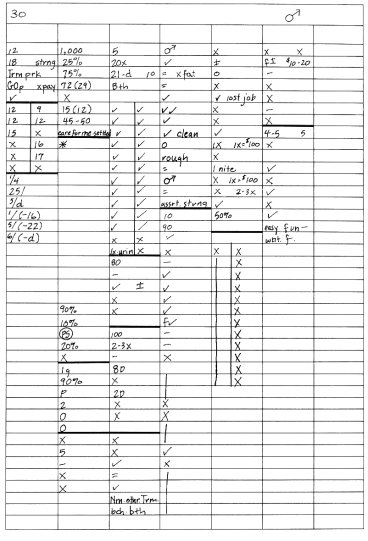 30 ♂
12 1,000 5 ♂ X X X
18 strng 25% 20x ✓ ± fI $10-20
Trm prk 75% 21-d 10 = x fat 0 –
GOp xpay 72 (29) 8th = X X
✓ X ✓ ✓ lost job X
12 9 15 (12) ✓ ✓ ✓✓ X –
12 12 45-50 ✓ ✓ ✓ ✓ X
15 X care for me settld ✓ ✓ ✓ clean ✓ 4-5 5
X 16 * ✓ ✓ 0 1X 1x=$100 X
X 17 ✓ ✓ rough X
X X ✓ ✓ = 1 nite ✓
1/4 ✓ ✓ ♂ X 1x=$100 X
25/ ✓ ✓ = X 2-3x ✓
3/d ✓ ✓ assrt. strvng ✓ X
1/(-16) ✓ ✓ 10 50% ✓
5/(-22) ✓ ✓ 90 easy fun –
6/(-d) X X ✓ wbt. f.
1x urin X X X X
80 – X
– ✓ X
✓ ± ✓ X
X ✓ X
90% X ✓ X
10% f✓ X
P5 100 – X
20% 2-3x – X
X – X X
1g 80 X
90% X
P 20
2 X X
0 X X
0
X X
5 X ✓
– ✓ X
X =
X ✓
Nrn. other Trm
bch. bth